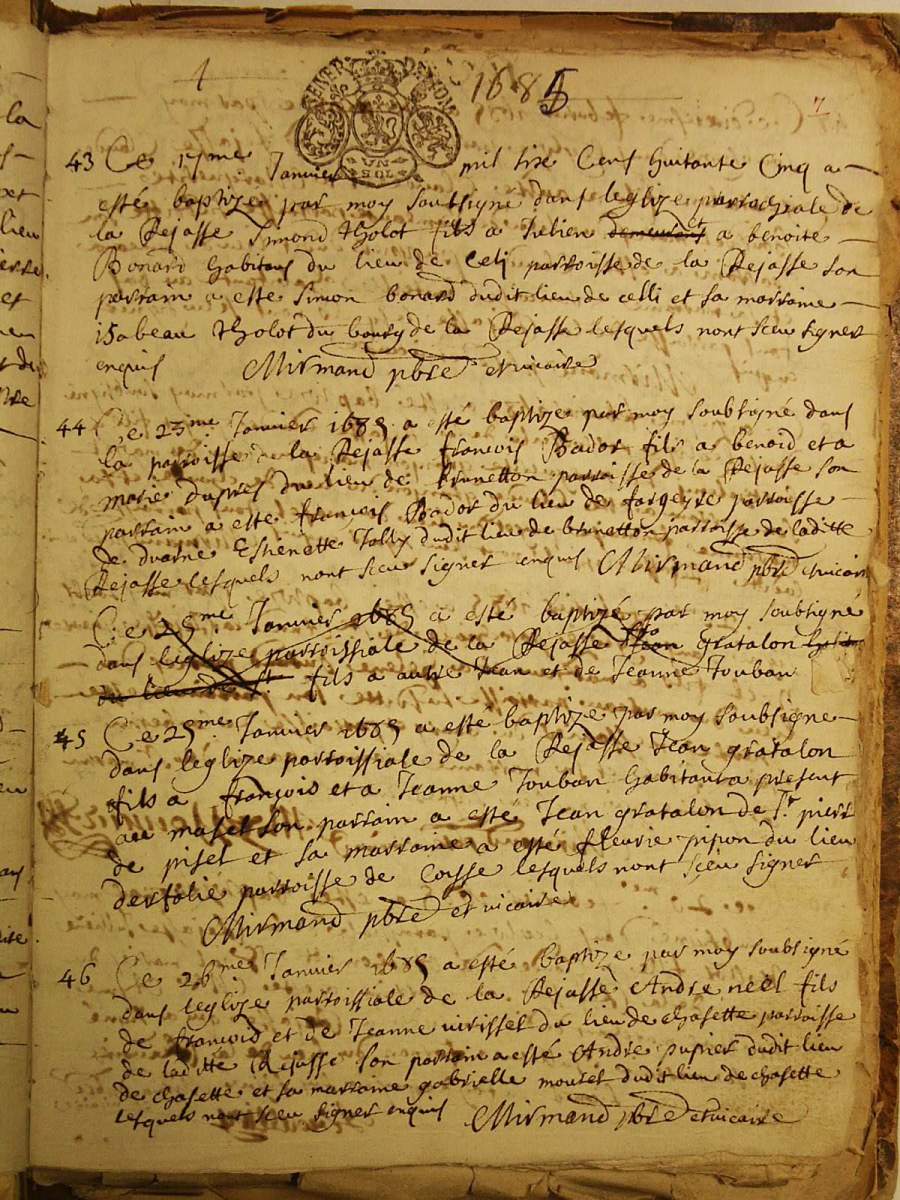 1 1685 7
GENER DE LYON
UN SOL
43 Ce 17me Janvier mil sixe Cens huitante Cinq a
esté baptize par moy soubsigné dans leglize parrochiale de
la Rejasse Simond tholot fils a Julien demeurant a benoite
Bonard habitans du lieu de Celi parroisse de la Rejasse son
parrain a este Simon bonard dudit lieu de celli et sa marraine
isabeau tholot du bourg de la Rejasse lesquels nont sceu signer
enquis Mirmand pbre et vicaire
44 Ce 23me Janvier 1685 a esté baptize par moy soubsigné dans
la parroisse de la Rejasse françois Bador fils a benoid et a
marie dupres du lieu de brunetton parroisse de la Rejasse son
parrain a este françois Bador du lieu de fargeyre parroisse
de duarne Estienette Jolly dudit lieu de brunetton parroisse de laditte
Rejasse lesquels nont sceu signer enquis Mirmand pbre et vicair
Ce 25me Janvier 1685 a esté baptizé par moy soubsigné
dans leglize parroissiale de la Rejasse Jean gratalon
du lieu de St fils a autre Jean et de Jeanne Jouban
45 Ce 25me Janvier 1685 a esté baptize par moy soubsigne
dans leglize parroissiale de la Rejasse Jean gratalon
fils a françois et a Jeanne Jouban habitant a present
au maset son parrain a esté Jean gratalon de St pierr
de pisel et sa marraine a esté fleurie pipon du lieu
parroisse de Coisse lesquels nont sceu signer
Mirmand pbre et vicaire
46 Ce 26me Janvier 1685 a esté baptize par moy soubsigné
dans leglize parroissiale de la Rejasse Andre neel fils
de françois et de Jeanne virisset du lieu de chasette parroisse
de laditte Rejasse son parrain a esté Andre pupier dudit lieu
de chasette et sa marraine gabrielle mouset dudit lieu de chasette
lesquels nont sceu signer enquis Mirmand pbre et vicaire